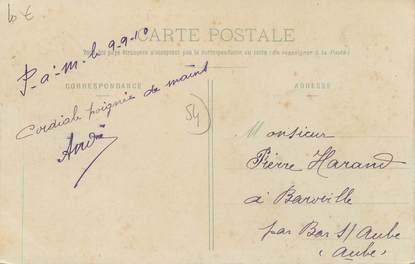 10 €
CARTE POSTALE
Tous les pays étrangers n'acceptent pas la correspondance au recto (Se renseigner à la Poste)
P-à-M. le 9-9-10
CORRESPONDANCE
Cordiale poignée de mains
André
54
ADRESSE
Monsieur
Pierre Harand
à Baroville
par Bar s/ Aube
(Aube)